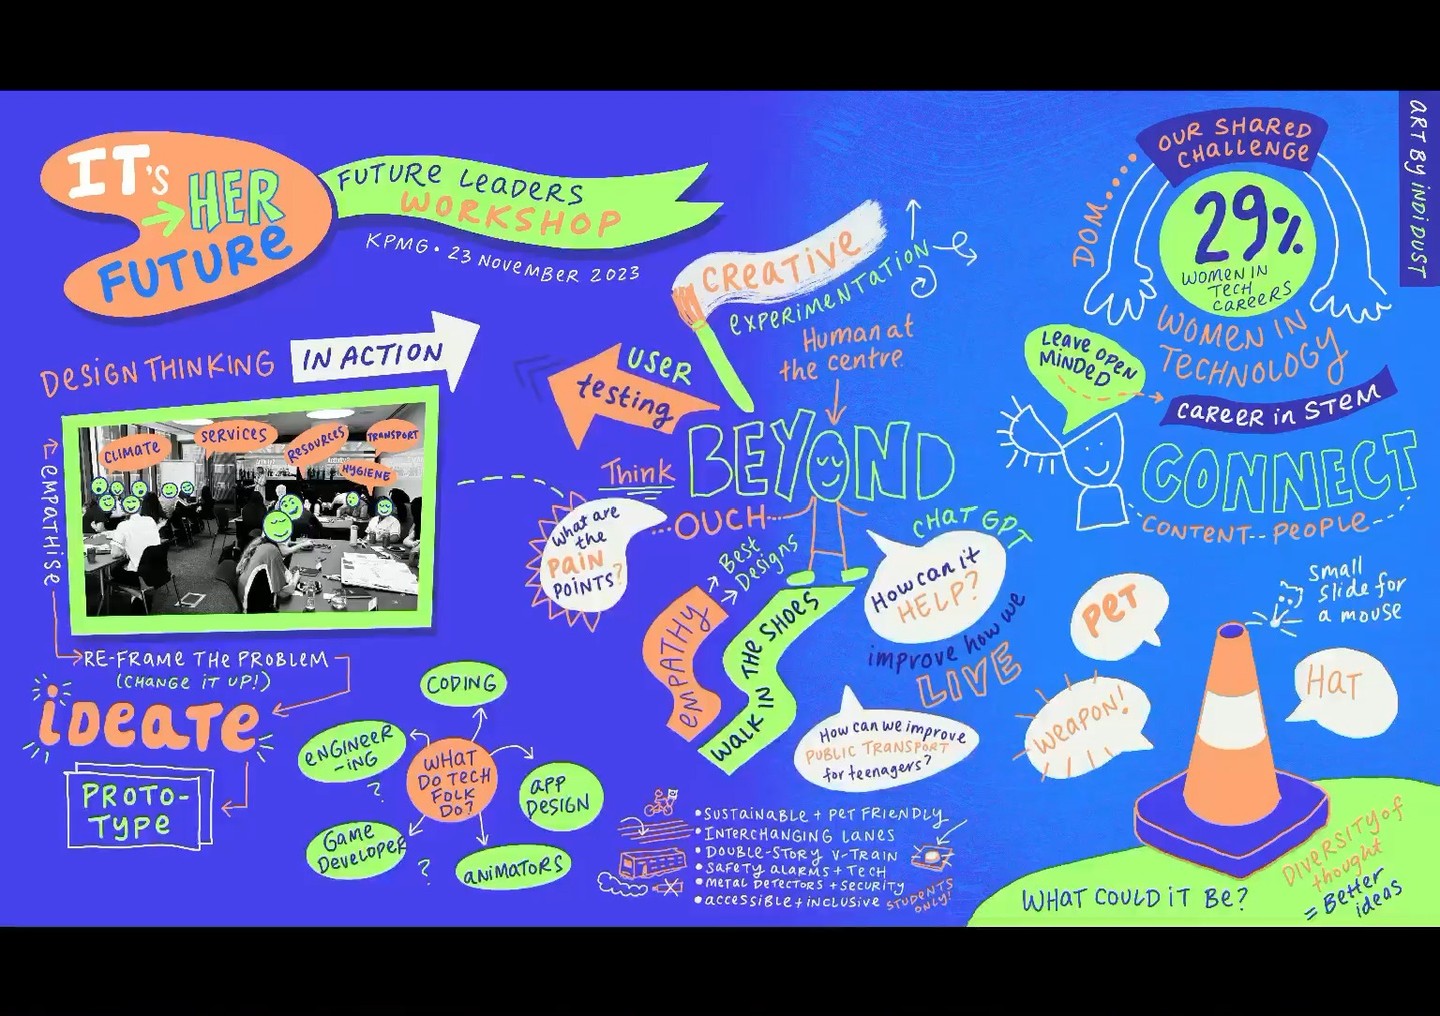 IT's
HER
FUTURE
FUTURE LEADERS
WORKSHOP
KPMG • 23 NOVEMBER 2023
DESIGN THINKING
IN ACTION
CLIMATE
SERVICES
RESOURCES
TRANSPORT
HYGIENE
EMPATHISE
RE-FRAME THE PROBLEM
(CHANGE IT UP!)
iDEATE
PROTO-
TYPE
CODING
ENGINEER
-ING
?
WHAT
DO TECH
FOLK
DO?
APP
DESIGN
GAME
DEVELOPER
?
ANIMATORS
CREATIVE
EXPERIMENTATION
Human at
the centre.
USER
testing
Think
BEYOND
What are
the
PAIN
POINTS?
...OUCH...
Best
Designs
EMPATHY
WALK IN THE SHOES
CHAT GPT
How can it
HELP?
improve how we
LIVE
How can we improve
PUBLIC TRANSPORT
for teenagers?
• SUSTAINABLE + PET FRIENDLY
• INTERCHANGING LANES
• DOUBLE-STORY V-TRAIN
• SAFETY ALARMS + TECH
• METAL DETECTORS + SECURITY
• ACCESSIBLE + INCLUSIVE
STUDENTS
ONLY!
OUR SHARED
CHALLENGE
DOM......
29%
WOMEN IN
TECH
CAREERS
WOMEN IN
TECHNOLOGY
LEAVE OPEN
MINDED
CAREER in STEM
CONNECT
CONTENT--PEOPLE
PET
small
slide for
a mouse
WEAPON!
HAT
WHAT COULD iT BE?
DIVERSITY of
thought
= Better
ideas
ART BY iNDi DUST